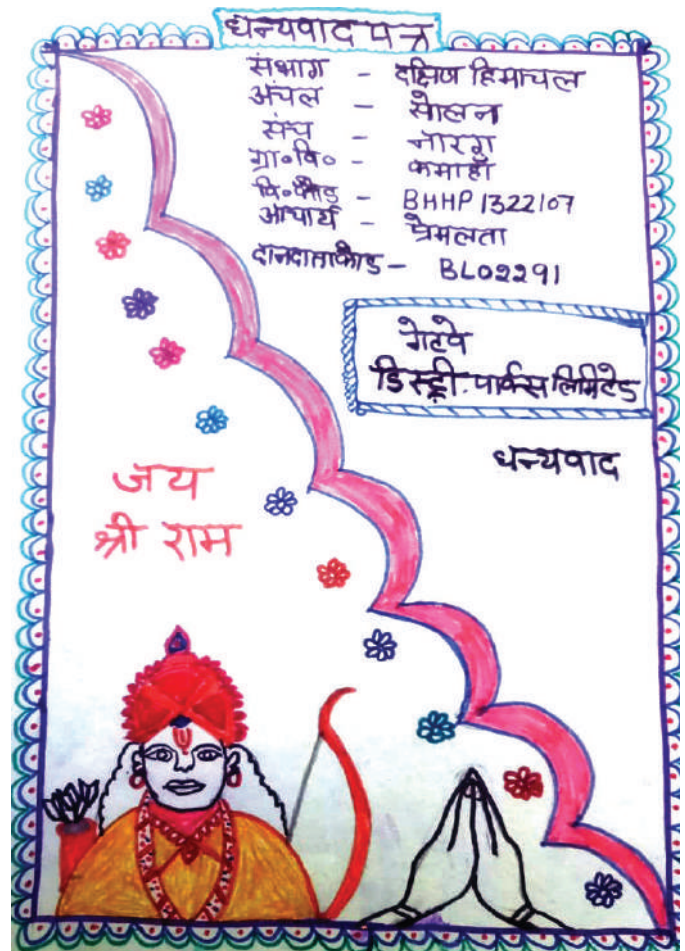 धन्यवाद पत्र
संभाग - दक्षिण हिमाचल
अंचल - सोलन
संच - नारग
ग्रा०वि० - कमाहाँ
वि०कोड - BHHP1322107
आचार्य - प्रेमलता
दानदाताकोड - BL02291
गेटवे
डिस्ट्री.पार्क्स लिमिटेड
धन्यवाद
जय
श्री राम